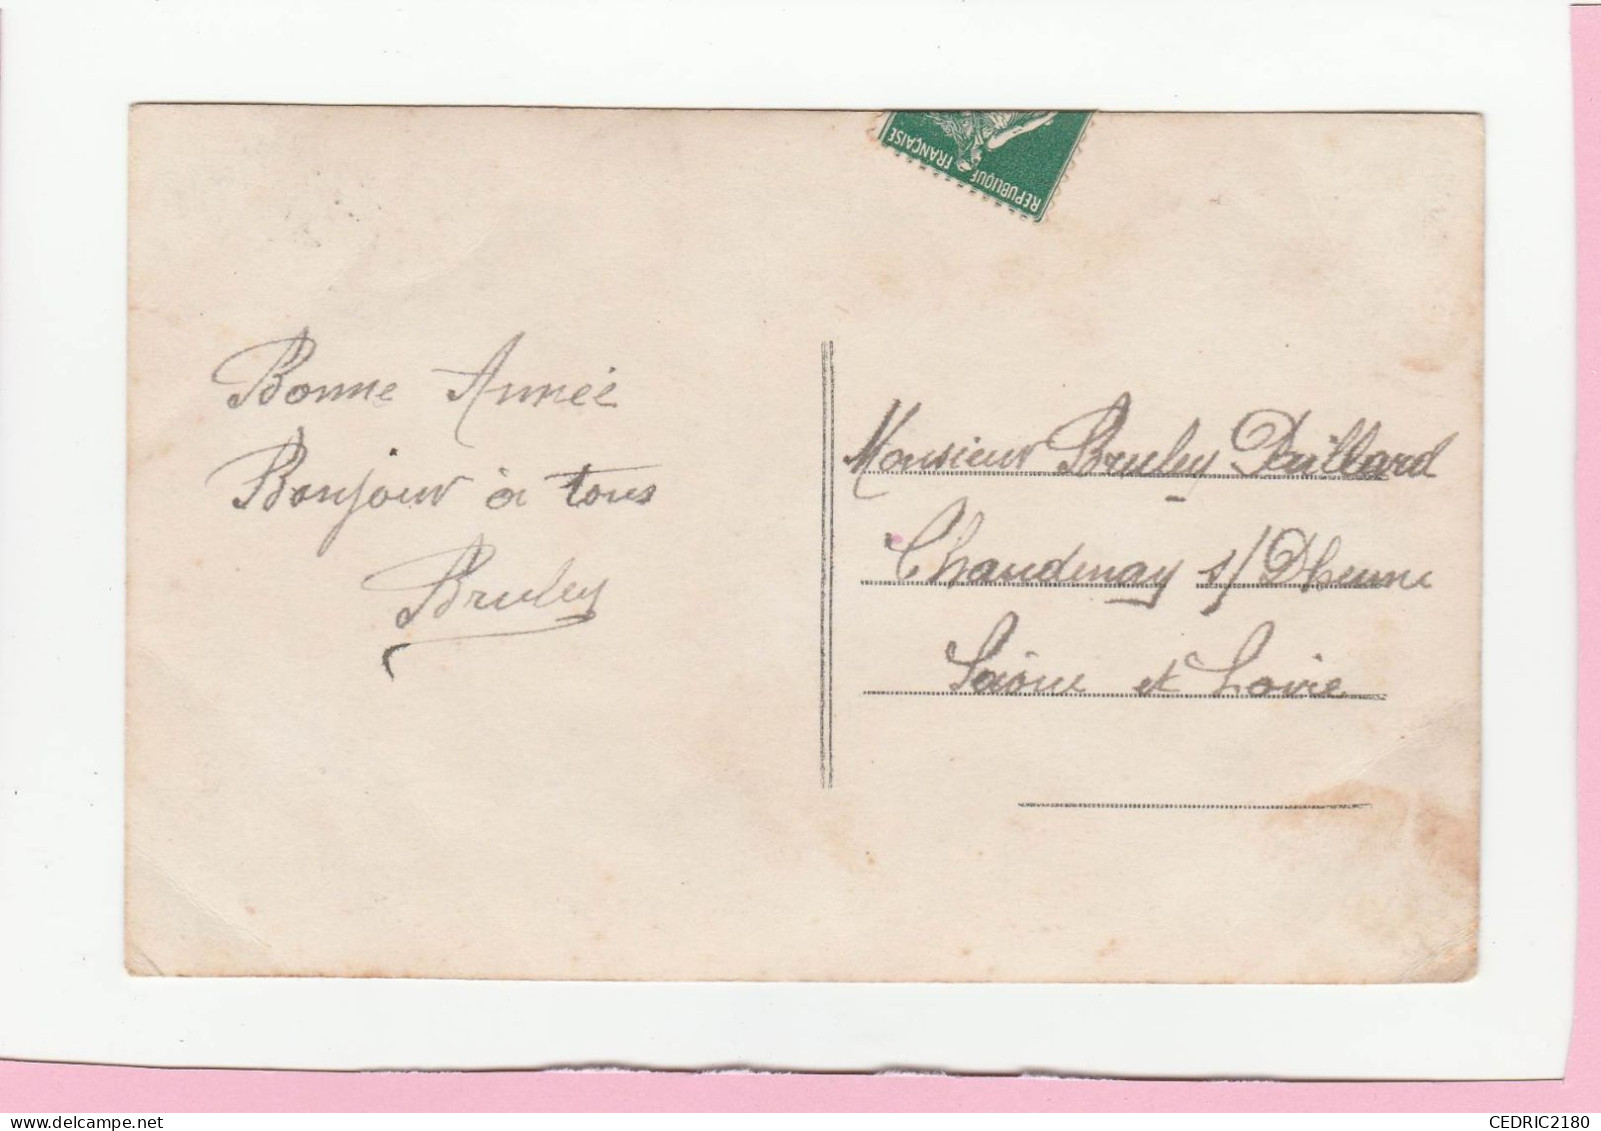 REPUBLIQUE FRANÇAISE
Bonne Année
Bonjour à tous
Bruley
Monsieur Bruley Paillard
Chaudenay s/ Dheune
Saône et Loire
CEDRIC2180